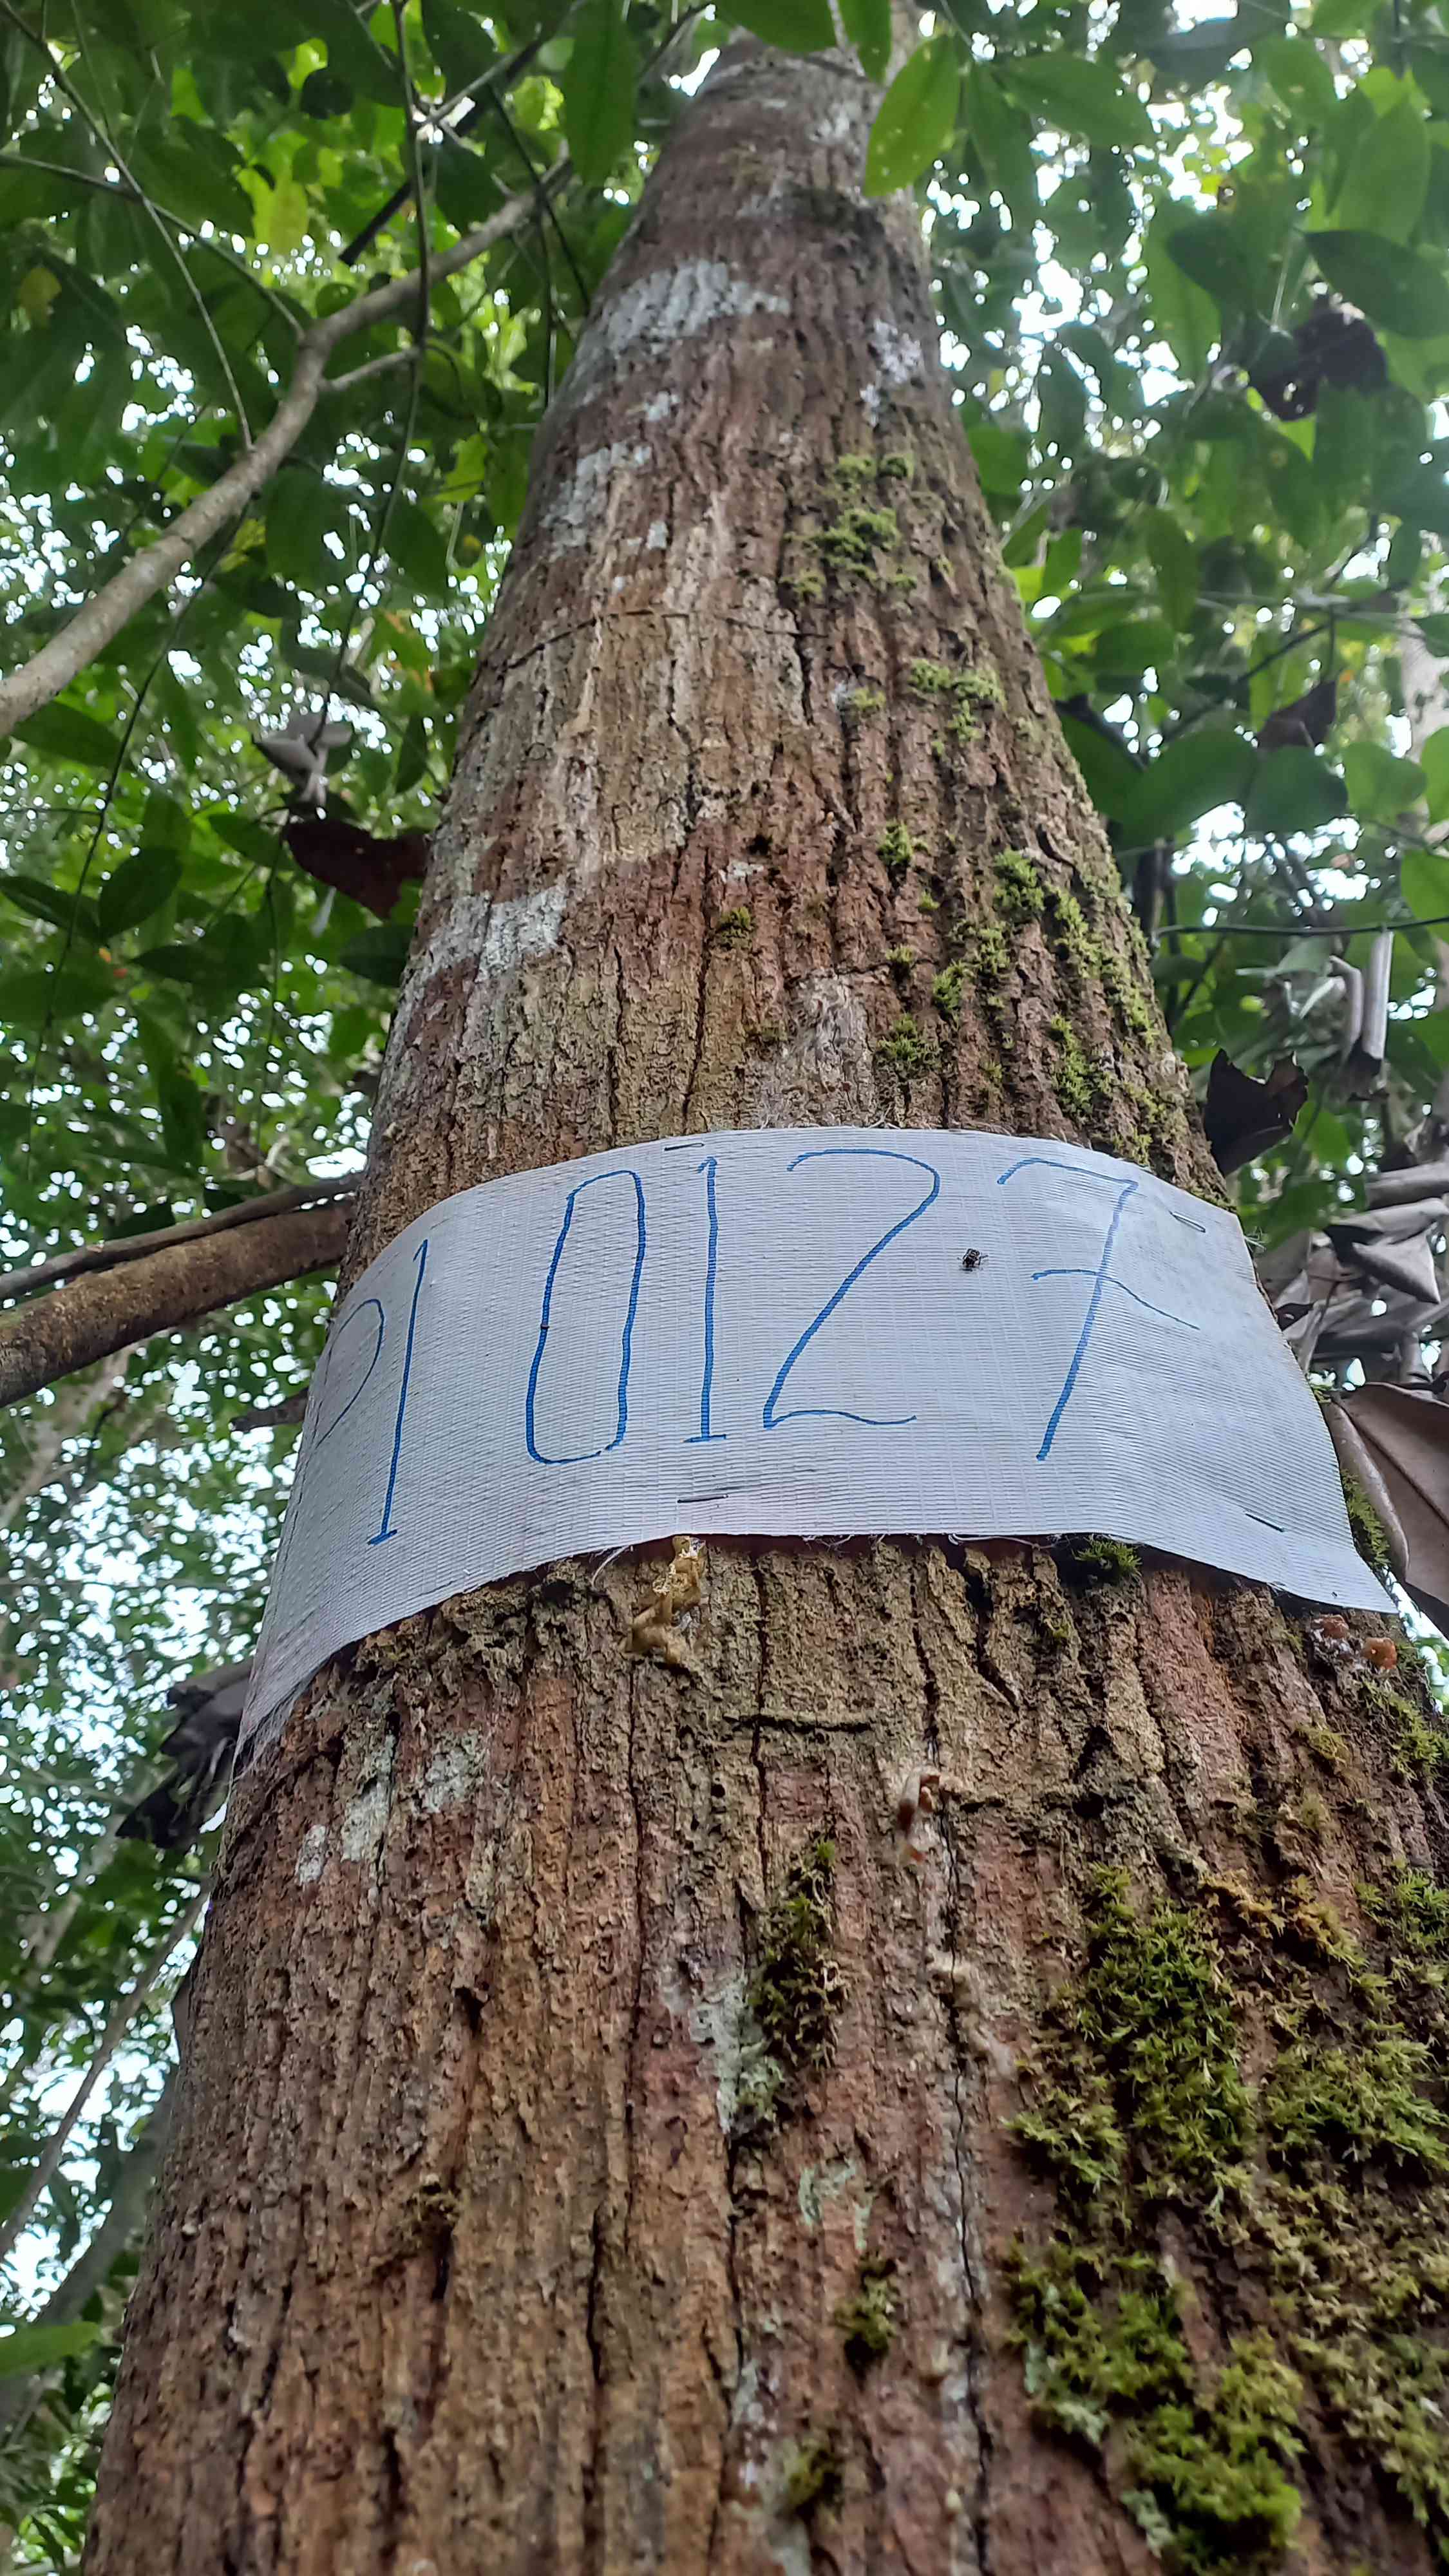 P1 0127